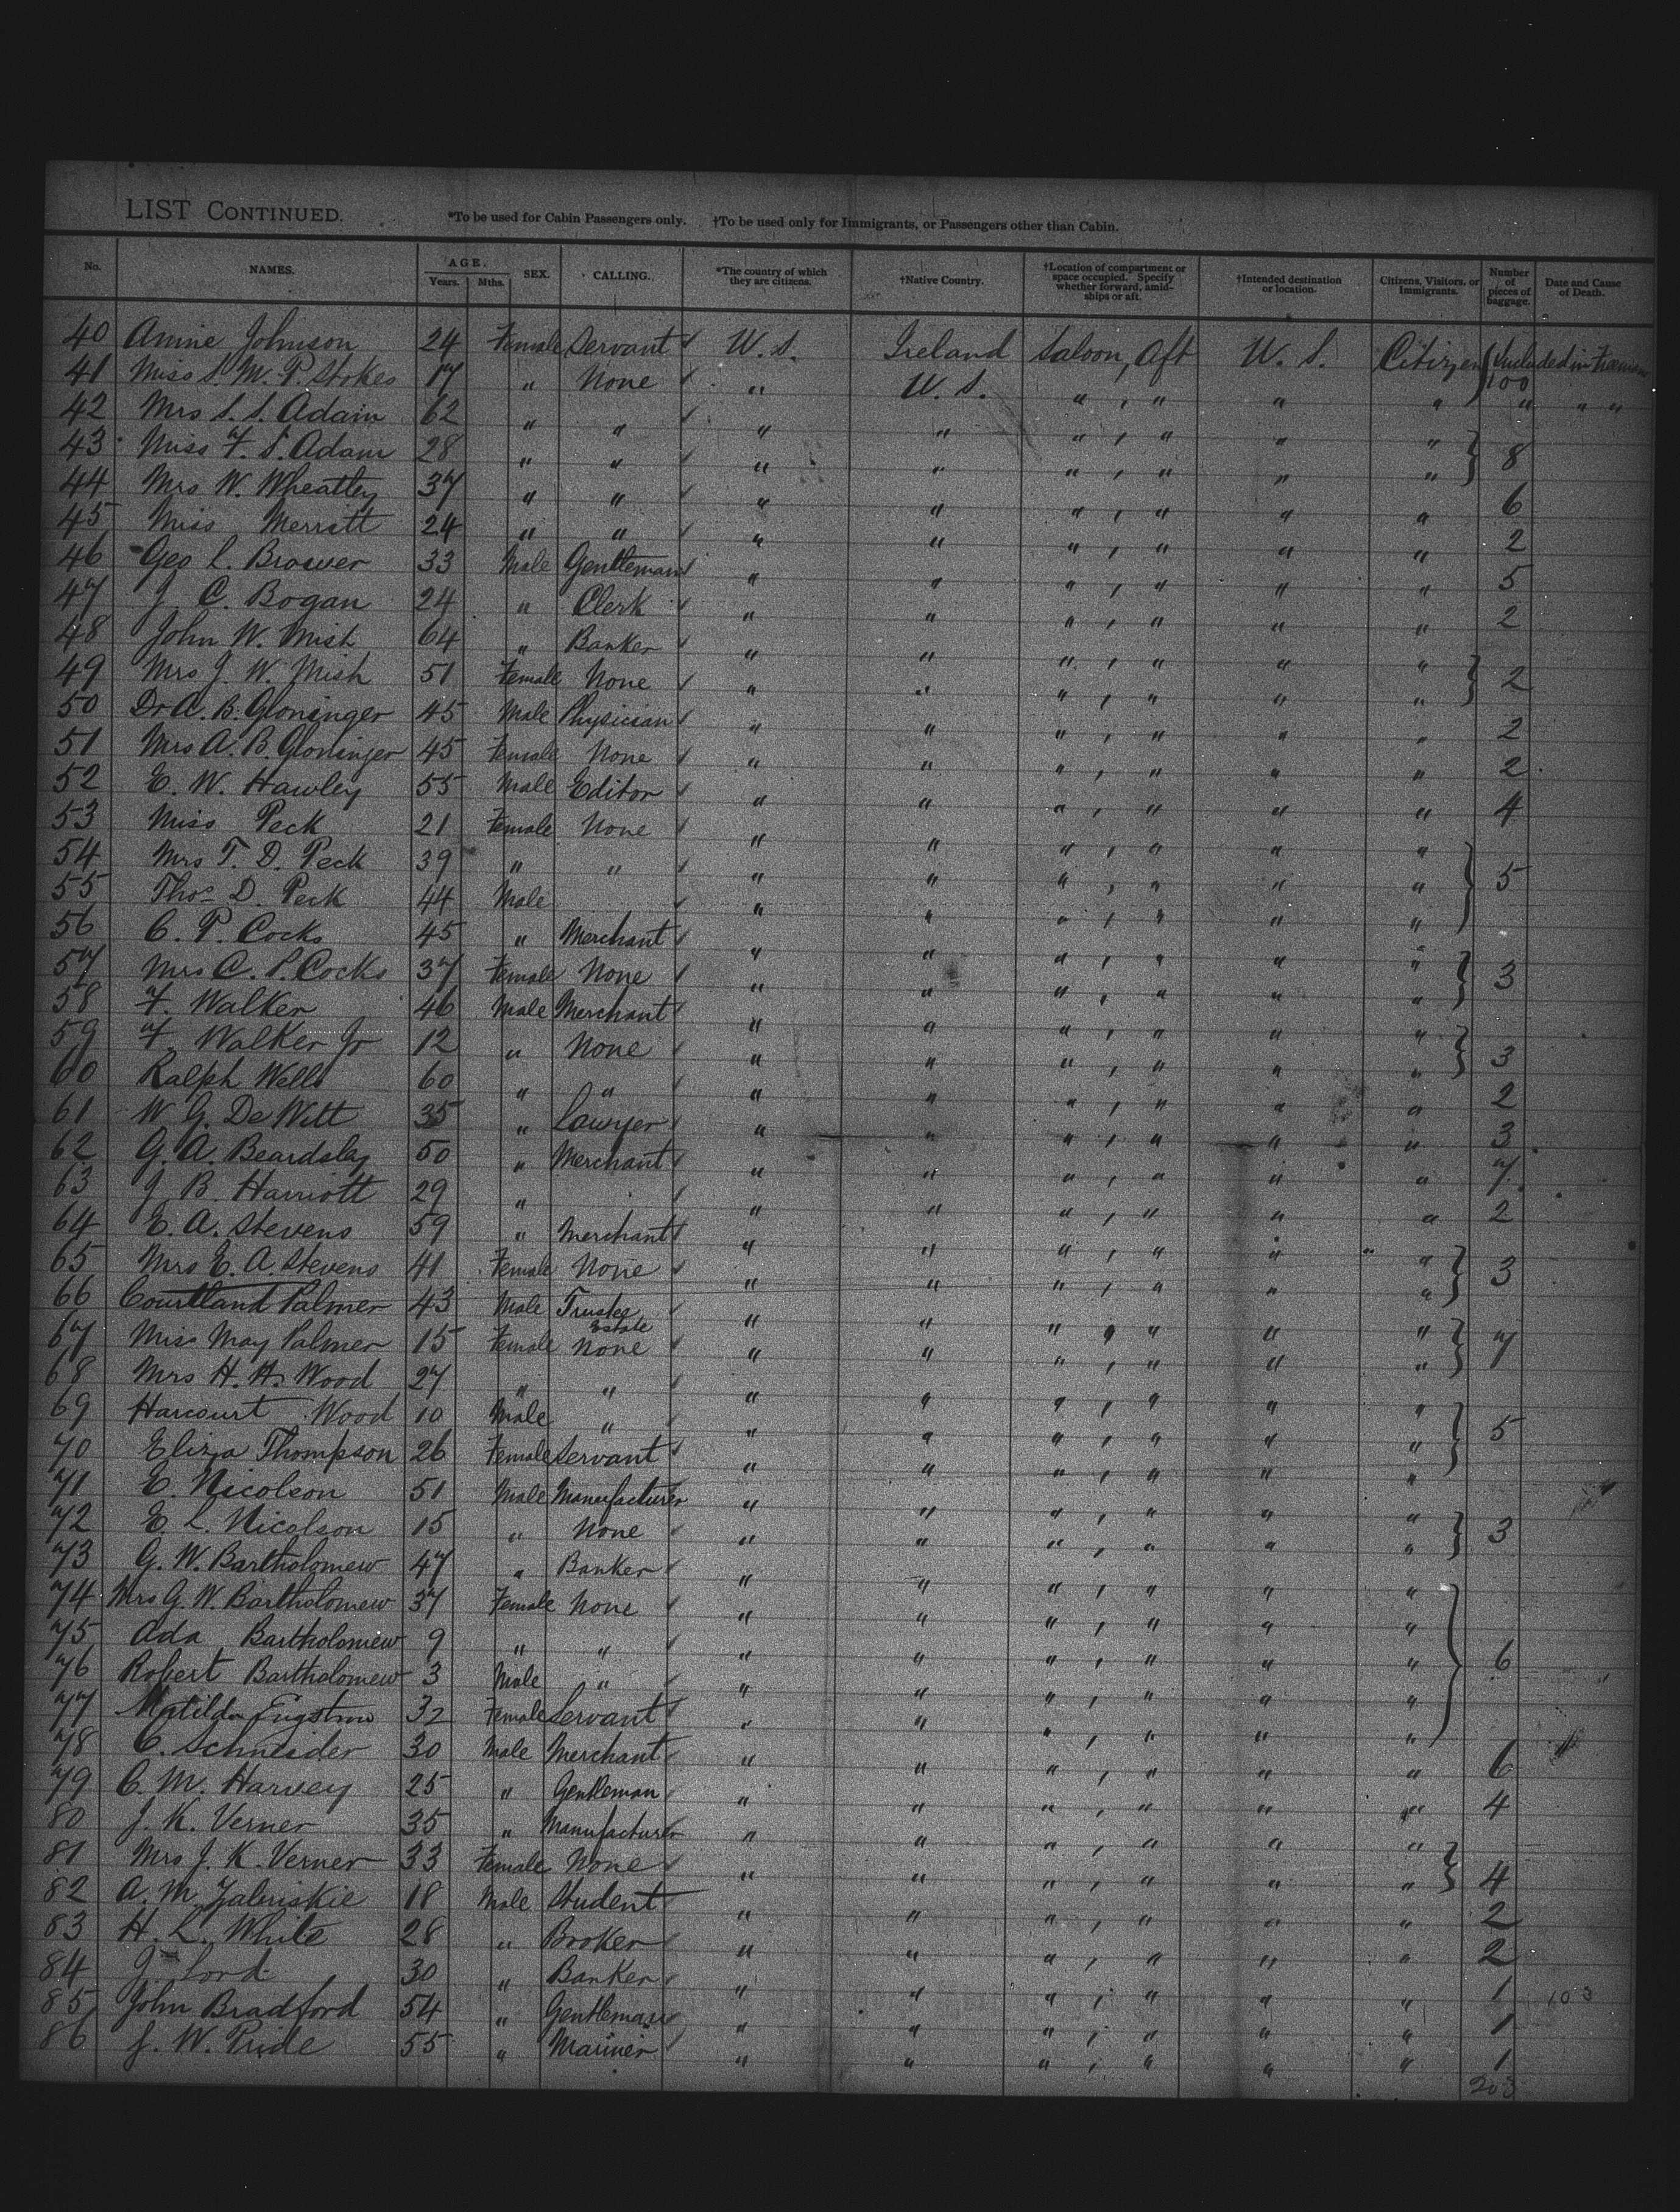 LIST CONTINUED. *To be used for Cabin Passengers only. †To be used only for Immigrants, or Passengers other than Cabin.
No. NAMES. AGE. Years. Mths. SEX. CALLING. *The country of which they are citizens. †Native Country. †Location of compartment or space occupied. Specify whether forward, amidships or aft. †Intended destination or location. Citizens, Visitors, or Immigrants. Number of pieces of baggage. Date and Cause of Death.
40 Annie Johnson 24 Female Servant U.S. Ireland Saloon, Aft U.S. Citizen Included in
41 Miss S. M. P. Stokes 17 " None " U.S. " , " " " 100 " " "
42 Mrs S. S. Adam 62 " " " " " , " " "
43 Miss F. S. Adam 28 " " " " " , " " " 8
44 Mrs W. Wheatley 37 " " " " " , " " " 6
45 Miss Merritt 24 " " " " " , " " " 2
46 Geo L. Brower 33 Male Gentleman " " " , " " " 5
47 J. C. Bogan 24 " Clerk " " " , " " " 2
48 John W. Mish 64 " Banker " " " , " " "
49 Mrs J. W. Mish 51 Female None " " " , " " " 2
50 Dr A. B. Gloninger 45 Male Physician " " " , " " " 2
51 Mrs A. B. Gloninger 45 Female None " " " , " " " 2
52 E. W. Hawley 55 Male Editor " " " , " " " 4
53 Miss Peck 21 Female None " " " , " " "
54 Mrs T. D. Peck 39 " " " " " , " " " 5
55 Thos D. Peck 44 Male " " " , " " "
56 C. P. Cocks 45 " Merchant " " " , " " "
57 Mrs C. P. Cocks 37 Female None " " " , " " " 3
58 F. Walker 46 Male Merchant " " " , " " "
59 F. Walker Jr 12 " None " " " , " " " 3
60 Ralph Wells 60 " " " " " , " " " 2
61 W. G. De Witt 35 " Lawyer " " " , " " " 3
62 G. A. Beardsley 50 " Merchant " " " , " " " 7
63 J. B. Harriott 29 " " " " , " " " 2
64 E. A. Stevens 59 " Merchant " " " , " " "
65 Mrs E. A. Stevens 41 Female None " " " , " " " 3
66 Courtland Palmer 43 Male Trustee Estate " " " , " " "
67 Miss May Palmer 15 Female None " " " , " " " 7
68 Mrs H. H. Wood 27 " " " " " , " " "
69 Harcourt Wood 10 Male " " " " , " " " 5
70 Eliza Thompson 26 Female Servant " " " , " " "
71 E. Nicolson 51 Male Manufacturer " " " , " " "
72 E. L. Nicolson 15 " None " " " , " " " 3
73 G. W. Bartholomew 47 " Banker " " " , " " "
74 Mrs G. W. Bartholomew 37 Female None " " " , " " "
75 Ada Bartholomew 9 " " " " " , " " " 6
76 Robert Bartholomew 3 Male " " " " , " " "
77 Matilda Engstrom 32 Female Servant " " " , " " "
78 C. Schneider 30 Male Merchant " " " , " " " 6
79 C. M. Harvey 25 " Gentleman " " " , " " " 4
80 J. K. Verner 35 " Manufacturer " " " , " " "
81 Mrs J. K. Verner 33 Female None " " " , " " " 4
82 A. M. 18 Male Student " " " , " " " 2
83 H. L. White 28 " Broker " " " , " " " 2
84 J. Lord 30 " Banker " " " , " " " 1 103
85 John Bradford 54 " Gentleman " " " , " " " 1
86 J. W. Pride 55 " Mariner " " " , " " " 1
203